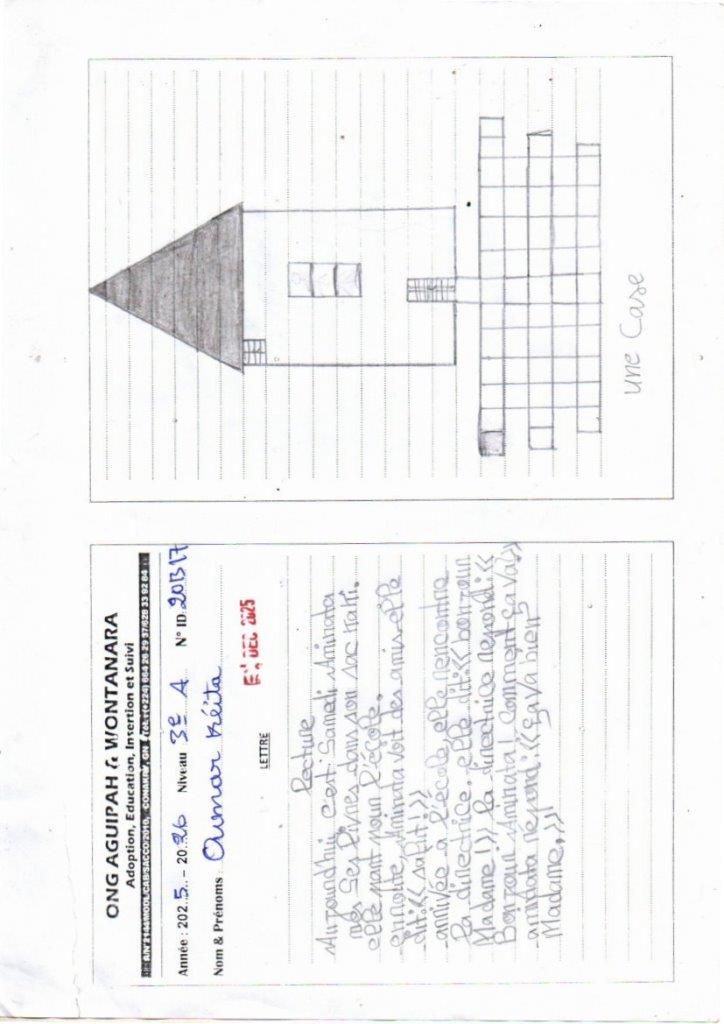 ONG AGUIPAH & WONTANARA
Adoption, Education, Insertion et Suivi
Année : 2025 – 2026 Niveau 3e A N° ID 20B17
Nom & Prénoms : Oumar Kéita
DEC 2025
LETTRE
Lecture
Aujourdhui c'est Samedi Aminata
ses livres dans son sac
elle pour l'école.
Aminata voit des amis elle
dit:<< salut!>>
arrivée a l'école, elle rencontre
la directrice. elle dit:<< bonjour
Madame!>> la directrice repond:<<
Bonjour Aminata! Comment ça va!>>
aminata repond:<< ça va bien
Madame.>>
une Case